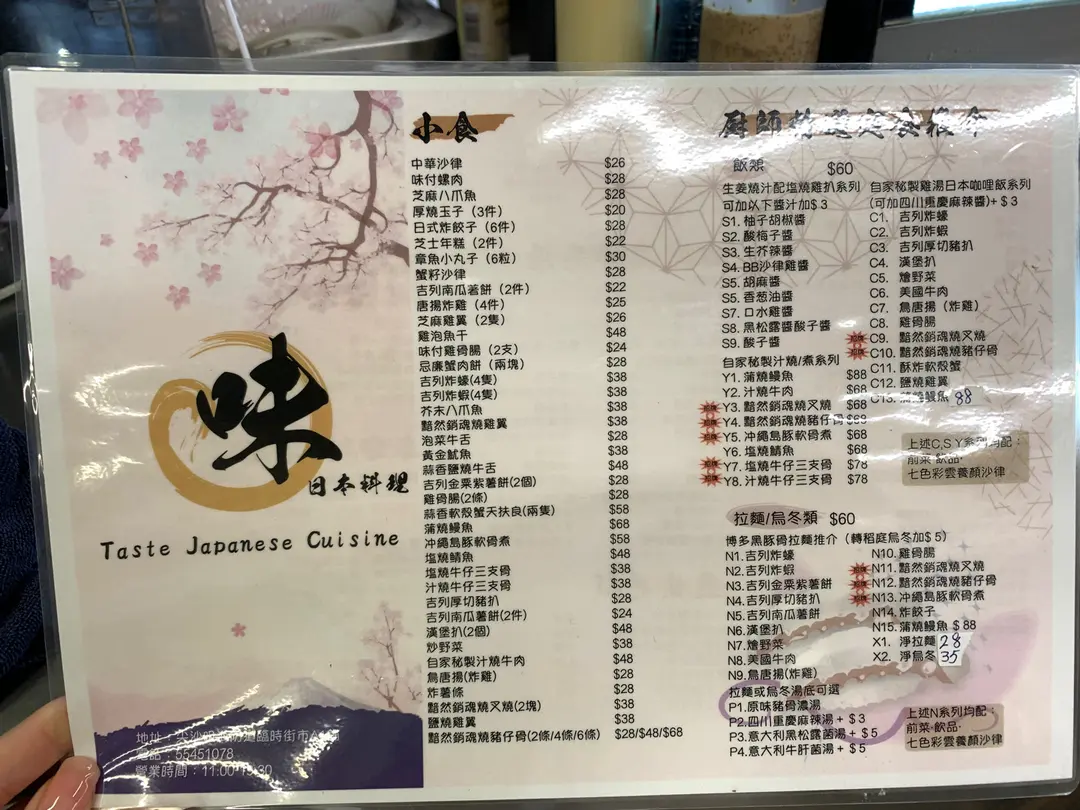 味
日本料理
Taste Japanese Cuisine
電話：55451078
營業時間：11:00-19:30
小食
中華沙律 $26
味付螺肉 $28
芝麻八爪魚 $28
厚燒玉子（3件） $20
日式炸餃子（6件） $28
芝士年糕（2件） $22
章魚小丸子（6粒） $30
蟹籽沙律 $28
吉列南瓜薯餅（2件） $22
唐揚炸雞（4件） $25
芝麻雞翼（2隻） $26
雞泡魚干 $48
味付雞骨腸（2支） $24
忌廉蟹肉餅（兩塊） $28
吉列炸蠔(4隻) $38
吉列炸蝦(4隻) $38
芥末八爪魚 $38
黯然銷魂燒雞翼 $38
泡菜牛舌 $28
黃金魷魚 $38
蒜香鹽燒牛舌 $48
吉列金粟紫薯餅(2個) $28
雞骨腸(2條) $28
蒜香軟殼蟹天扶良(兩隻) $58
蒲燒鰻魚 $68
沖繩島豚軟骨煮 $58
塩燒鯖魚 $48
塩燒牛仔三支骨 $38
汁燒牛仔三支骨 $38
吉列厚切豬扒 $38
吉列南瓜薯餅(2件) $24
漢堡扒(2個) $48
炒野菜 $38
自家秘製汁燒牛肉 $48
鳥唐揚(炸雞) $28
炸薯條 $28
黯然銷魂燒叉燒(2塊) $38
鹽燒雞翼 $38
黯然銷魂燒豬仔骨(2條/4條/6條) $28/$48/$68
飯類 $60
生姜燒汁配塩燒雞扒系列
可加以下醬汁加$ 3
S1. 柚子胡椒醬
S2. 酸梅子醬
S3. 生芥辣醬
S4. BB沙律雞醬
S5. 胡麻醬
S5. 香葱油醬
S7. 口水雞醬
S8. 黑松露醬酸子醬
S9. 酸子醬
自家秘製汁燒/煮系列
Y1. 蒲燒鰻魚 $88
Y2. 汁燒牛肉 $68
Y3. 黯然銷魂燒叉燒 $68
Y4. 黯然銷魂燒豬仔骨 $68
Y5. 沖繩島豚軟骨煮 $68
Y6. 塩燒鯖魚 $68
Y7. 塩燒牛仔三支骨 $78
Y8. 汁燒牛仔三支骨 $78
自家秘製雞湯日本咖哩飯系列
(可加四川重慶麻辣醬)+ $ 3
C1. 吉列炸蠔
C2. 吉列炸蝦
C3. 吉列厚切豬扒
C4. 漢堡扒
C5. 燴野菜
C6. 美國牛肉
C7. 鳥唐揚（炸雞）
C8. 雞骨腸
C9. 黯然銷魂燒叉燒
C10. 黯然銷魂燒豬仔骨
C11. 酥炸軟殼蟹
C12. 鹽燒雞翼
C13. 蒲燒鰻魚 88
上述C,S Y系列均配：
前菜·飲品·
七色彩雲養顏沙律
拉麵/烏冬類 $60
博多黑豚骨拉麵推介（轉稻庭烏冬加$ 5）
N1. 吉列炸蠔
N2. 吉列炸蝦
N3. 吉列金粟紫薯餅
N4. 吉列厚切豬扒
N5. 吉列南瓜薯餅
N6. 漢堡扒
N7. 燴野菜
N8. 美國牛肉
N9. 鳥唐揚(炸雞)
N10. 雞骨腸
N11. 黯然銷魂燒叉燒
N12. 黯然銷魂燒豬仔骨
N13. 沖繩島豚軟骨煮
N14. 炸餃子
N15. 蒲燒鰻魚 $ 88
X1. 淨拉麵 28
X2. 淨烏冬 35
拉麵或烏冬湯底可選
P1. 原味豬骨濃湯
P2. 四川重慶麻辣湯 + $ 3
P3. 意大利黑松露菌湯 + $ 5
P4. 意大利牛肝菌湯 + $ 5
上述N系列均配：
前菜·飲品·
七色彩雲養顏沙律